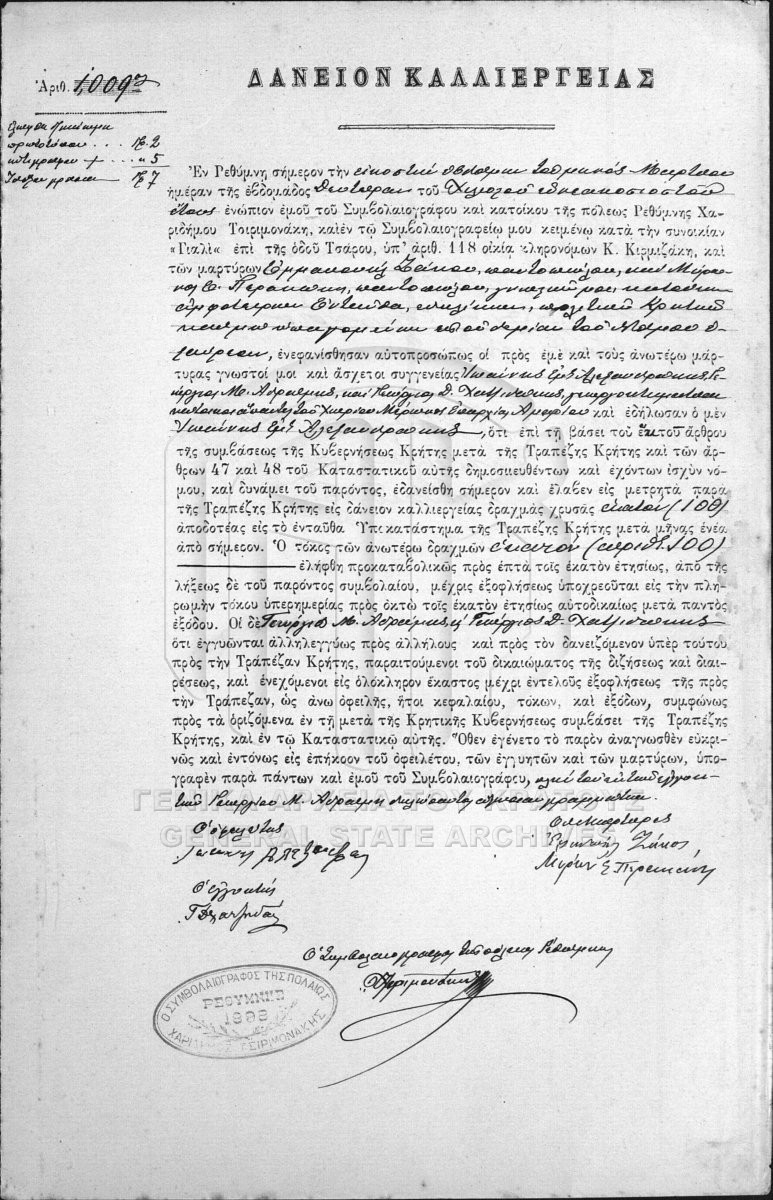 ΔΑΝΕΙΟΝ ΚΑΛΛΙΕΡΓΕΙΑΣ
Ἀριθ. 1,009
πρωτοτύπου . . . δρ. 2
ἀντιγράφου . . . „ 5
δρ. 7
Ἐν Ρεθύμνῃ σήμερον τὴν εἰκοστὴν ἑβδόμην τοῦ μηνὸς Μαρτίου
ἡμέραν τῆς ἑβδομάδος Δευτέραν τοῦ χιλιοστοῦ ἐννεακοσιοστοῦ
ἔτους ἐνώπιον ἐμοῦ τοῦ Συμβολαιογράφου καὶ κατοίκου τῆς πόλεως Ρεθύμνης Χα-
ριδήμου Τσιριμονάκη, καὶἐν τῷ Συμβολαιογραφείῳ μου κειμένῳ κατὰ τὴν συνοικίαν
«Γιαλὶ» ἐπὶ τῆς ὁδοῦ Τσάρου, ὑπ' ἀριθ. 118 οἰκίᾳ κληρονόμων Κ. Κιρμιζάκη, καὶ
τῶν μαρτύρων Ἐμμανουὴλ Ζάκου, παντοπώλου, καὶ Μύρω-
νος Ε. Περακάκη, παντοπώλου,
ἀμφοτέρων ἐνταῦθα, πολιτῶν Κρητῶν
τοῦ Νόμου
ἐνεφανίσθησαν αὐτοπροσώπως οἱ πρὸς ἐμὲ καὶ τοὺς ἀνωτέρω μάρ-
τυρας γνωστοί μοι καὶ ἄσχετοι συγγενείας Ἰωάννης Ἐμ. Ἀλεξανδράκης, Γε-
ώργιος Μ. καὶ Γεώργιος Δ. Χατζιδάκης,
κάτοικοι ἅπαντες τοῦ χωρίου Μέρωνος Ἐπαρχίας Ἀμαρίου καὶ ἐδήλωσαν ὁ μὲν
Ἰωάννης Ἐμ. Ἀλεξανδράκης, ὅτι ἐπὶ τῇ βάσει τοῦ ἕκτου ἄρθρου
τῆς συμβάσεως τῆς Κυβερνήσεως Κρήτης μετὰ τῆς Τραπέζης Κρήτης καὶ τῶν ἄρ-
θρων 47 καὶ 48 τοῦ Καταστατικοῦ αὐτῆς δημοσιευθέντων καὶ ἐχόντων ἰσχὺν νό-
μου, καὶ δυνάμει τοῦ παρόντος, ἐδανείσθη σήμερον καὶ ἔλαβεν εἰς μετρητὰ παρὰ
τῆς Τραπέζης Κρήτης εἰς δάνειον καλλιεργείας δραχμὰς χρυσᾶς ἑκατόν (100)
ἀποδοτέας εἰς τὸ ἐνταῦθα Ὑπικατάστημα τῆς Τραπέζης Κρήτης μετὰ μῆνας ἐνέα
ἀπὸ σήμερον. Ὁ τόκος τῶν ἀνωτέρω δραχμῶν ἑκατόν (ἀριθ. 100)
ἐλήφθη προκαταβολικῶς πρὸς ἑπτὰ τοῖς ἑκατὸν ἐτησίως, ἀπὸ τῆς
λήξεως δὲ τοῦ παρόντος συμβολαίου, μέχρις ἐξοφλήσεως ὑποχρεοῦται εἰς τὴν πλη-
ρωμὴν τόκου ὑπερημερίας πρὸς ὀκτὼ τοῖς ἑκατὸν ἐτησίως αὐτοδικαίως μετὰ παντὸς
ἐξόδου. Οἱ δὲ Γεώργιος Μ. Γεώργιος Δ. Χατζιδάκης
ὅτι ἐγγυῶνται ἀλληλεγγύως πρὸς ἀλλήλους καὶ πρὸς τὸν δανειζόμενον ὑπὲρ τούτου
πρὸς τὴν Τράπεζαν Κρήτης, παραιτούμενοι τοῦ δικαιώματος τῆς διζήσεως καὶ διαι-
ρέσεως, καὶ ἐνεχόμενοι εἰς ὁλόκληρον ἕκαστος μέχρι ἐντελοῦς ἐξοφλήσεως τῆς πρὸς
τὴν Τράπεζαν, ὡς ἄνω ὀφειλῆς, ἤτοι κεφαλαίου, τόκων, καὶ ἐξόδων, συμφώνως
πρὸς τὰ ὁριζόμενα ἐν τῇ μετὰ τῆς Κρητικῆς Κυβερνήσεως συμβάσει τῆς Τραπέζης
Κρήτης, καὶ ἐν τῷ Καταστατικῷ αὐτῆς. Ὅθεν ἐγένετο τὸ παρὸν ἀναγνωσθὲν εὐκρι-
νῶς καὶ ἐντόνως εἰς ἐπήκοον τοῦ ὀφειλέτου, τῶν ἐγγυητῶν καὶ τῶν μαρτύρων, ὑπο-
γραφὲν παρὰ πάντων καὶ ἐμοῦ τοῦ Συμβολαιογράφου, πλὴν τοῦ
Γεωργίου Μ. γραμμάτων.
ΓΕΝΙΚΑ ΑΡΧΕΙΑ ΤΟΥ ΚΡΑΤΟΥΣ
GENERAL STATE ARCHIVES
Ὁ ὀφειλέτης
Οἱ Μάρτυρες
Ζάκος
Μύρων Ε Περακάκης
Ὁ ἐγγυητής
Ὁ Συμβολαιογράφος τῆς πόλεως Ρεθύμνης
Ο ΣΥΜΒΟΛΑΙΟΓΡΑΦΟΣ ΤΗΣ ΠΟΛΕΩΣ
ΡΕΘΥΜΝΗΣ
ΧΑΡΙΔΗΜΟΣ ΤΣΙΡΙΜΟΝΑΚΗΣ